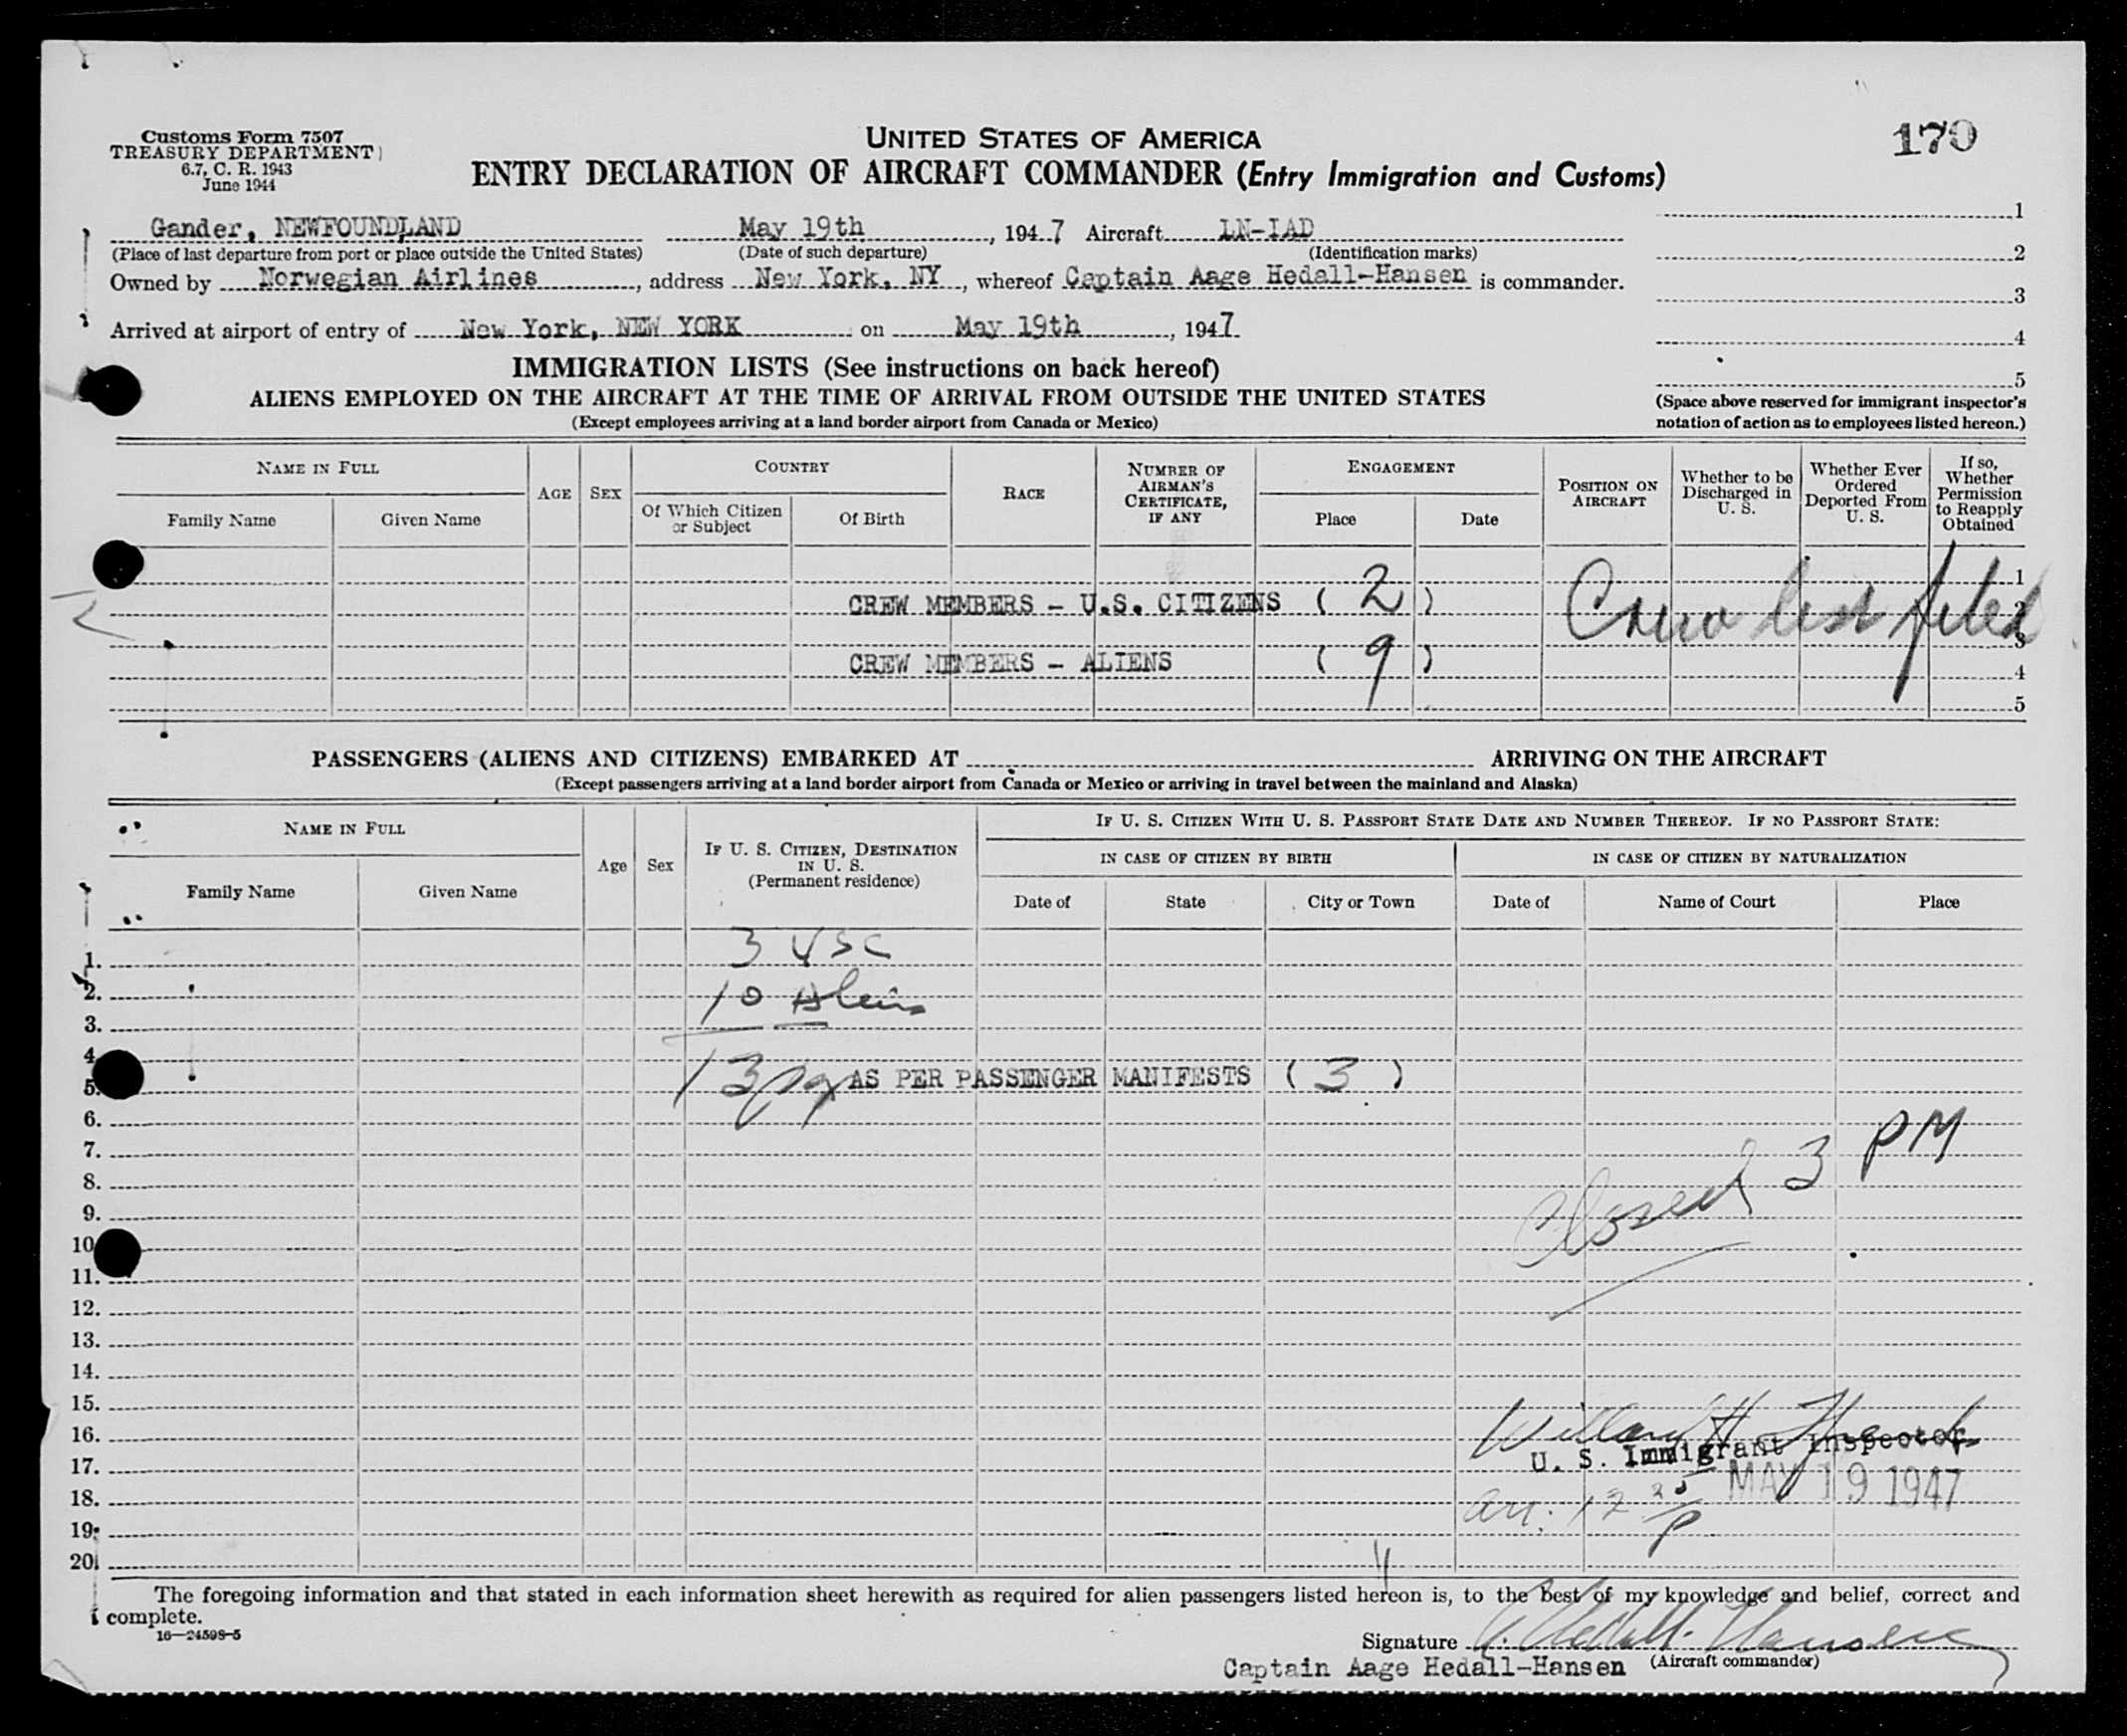 Customs Form 7507
TREASURY DEPARTMENT
6.7, C. R. 1943
June 1944
UNITED STATES OF AMERICA
179
ENTRY DECLARATION OF AIRCRAFT COMMANDER (Entry Immigration and Customs)
Gander, NEWFOUNDLAND May 19th, 1947 Aircraft LN-IAD
(Place of last departure from port or place outside the United States) (Date of such departure) (Identification marks)
Owned by Norwegian Airlines, address New York, NY, whereof Captain Aage Hedall-Hansen is commander.
Arrived at airport of entry of New York, NEW YORK on May 19th, 1947
1
2
3
4
5
(Space above reserved for immigrant inspector's
notation of action as to employees listed hereon.)
IMMIGRATION LISTS (See instructions on back hereof)
ALIENS EMPLOYED ON THE AIRCRAFT AT THE TIME OF ARRIVAL FROM OUTSIDE THE UNITED STATES
(Except employees arriving at a land border airport from Canada or Mexico)
NAME IN FULL
Family Name
Given Name
AGE
SEX
COUNTRY
Of Which Citizen
or Subject
Of Birth
RACE
NUMBER OF
AIRMAN'S
CERTIFICATE,
IF ANY
ENGAGEMENT
Place
Date
POSITION ON
AIRCRAFT
Whether to be
Discharged in
U. S.
Whether Ever
Ordered
Deported From
U. S.
If so,
Whether
Permission
to Reapply
Obtained
1
CREW MEMBERS - U.S. CITIZENS ( 2 ) Crew list filed 2
3
CREW MEMBERS - ALIENS ( 9 ) 4
5
PASSENGERS (ALIENS AND CITIZENS) EMBARKED AT ARRIVING ON THE AIRCRAFT
(Except passengers arriving at a land border airport from Canada or Mexico or arriving in travel between the mainland and Alaska)
NAME IN FULL
Family Name
Given Name
Age
Sex
IF U. S. CITIZEN, DESTINATION
IN U. S.
(Permanent residence)
IF U. S. CITIZEN WITH U. S. PASSPORT STATE DATE AND NUMBER THEREOF. IF NO PASSPORT STATE:
IN CASE OF CITIZEN BY BIRTH
Date of
State
City or Town
IN CASE OF CITIZEN BY NATURALIZATION
Date of
Name of Court
Place
1. 3 USC
2. 10 Aliens
3.
4.
5. 13 AS PER PASSENGER MANIFESTS ( 3 )
6.
7. Closed 3 PM
8.
9.
10
11.
12.
13.
14.
15.
16. Willard H.
17. U. S. Immigrant Inspector
18. arr. 12 20 P MAY 19 1947
19.
20.
The foregoing information and that stated in each information sheet herewith as required for alien passengers listed hereon is, to the best of my knowledge and belief, correct and
complete.
16—24598-5
Signature A. Hedall-Hansen
Captain Aage Hedall-Hansen (Aircraft commander)